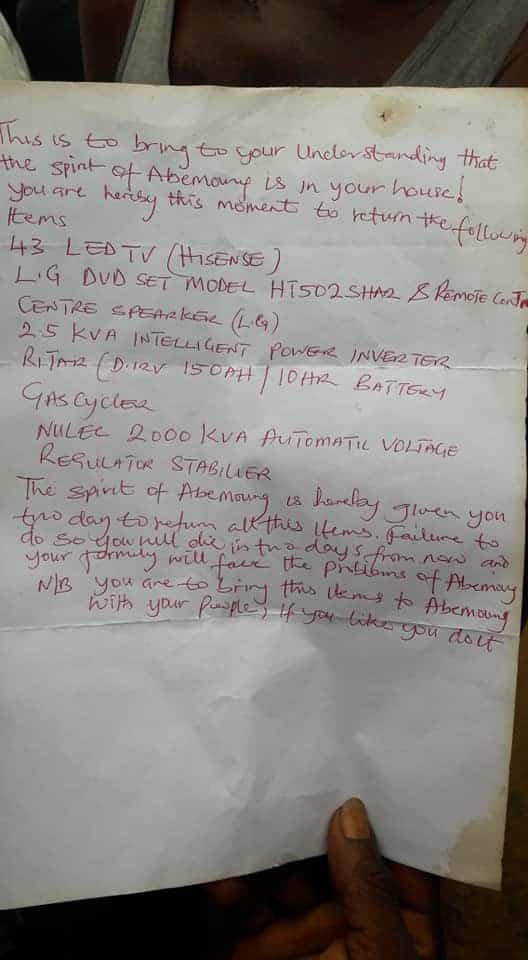 This is to bring to your Understanding that
the spirit of Abemoung is in your house!
You are hereby this moment to return the following
Items
43 LED TV (HISENSE)
L.G DVD SET MODEL HT502SHA2 & Remote Contr
CENTRE SPEARKER (L.G)
2.5 KVA INTELLIGENT POWER INVERTER
RITAR (D.12V 150AH / 10HR BATTERY
GAS CYCLER
NULEC 2000 KVA AUTOMATIC VOLTAGE
REGULATOR STABILIER
The spirit of Abemoung is hereby given you
two day to return all this Items. Failure to
do so you will die in two days from now and
your formily will face the problems of Abemoung
N/B you are to bring this items to Abemoung
With your People, If you likes you do it